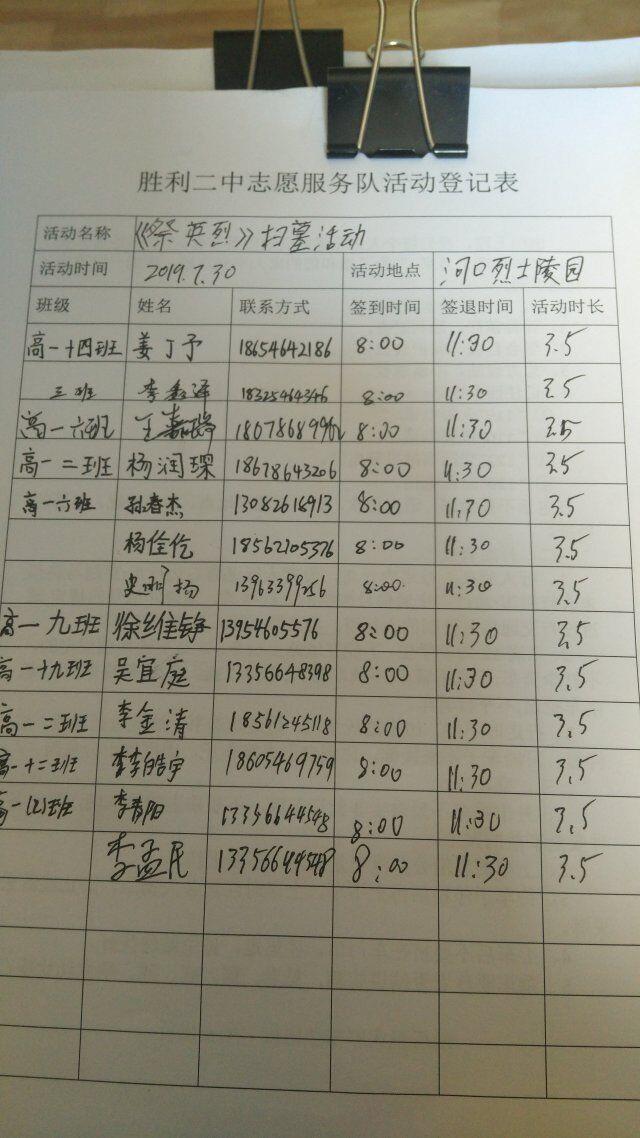 胜利二中志愿服务队活动登记表
活动名称 《祭英烈》扫墓活动
活动时间 2019.7.30 活动地点 河口烈士陵园
班级 姓名 联系方式 签到时间 签退时间 活动时长
高一十四班 姜丁予 18654642186 8:00 11:30 3.5
三班 李鑫泽 18325464346 8:00 11:30 3.5
高一六班 王嘉璐 8:00 11:30 3.5
高一二班 杨润琛 18678643206 8:00 11:30 3.5
高一六班 孙春杰 13082618913 8:00 11:30 3.5
杨佺伦 18562105376 8:00 11:30 3.5
史 扬 13963399256 8:00 11:30 3.5
高一九班 徐维铮 13954605576 8:00 11:30 3.5
高一十九班 吴宜庭 13356648398 8:00 11:30 3.5
高一二班 李金涛 18561245118 8:00 11:30 3.5
高一十二班 李皓宇 18605469759 8:00 11:30 3.5
高一(2)班 李春阳 13356644548 8:00 11:30 3.5
李孟民 13356644548 8:00 11:30 3.5